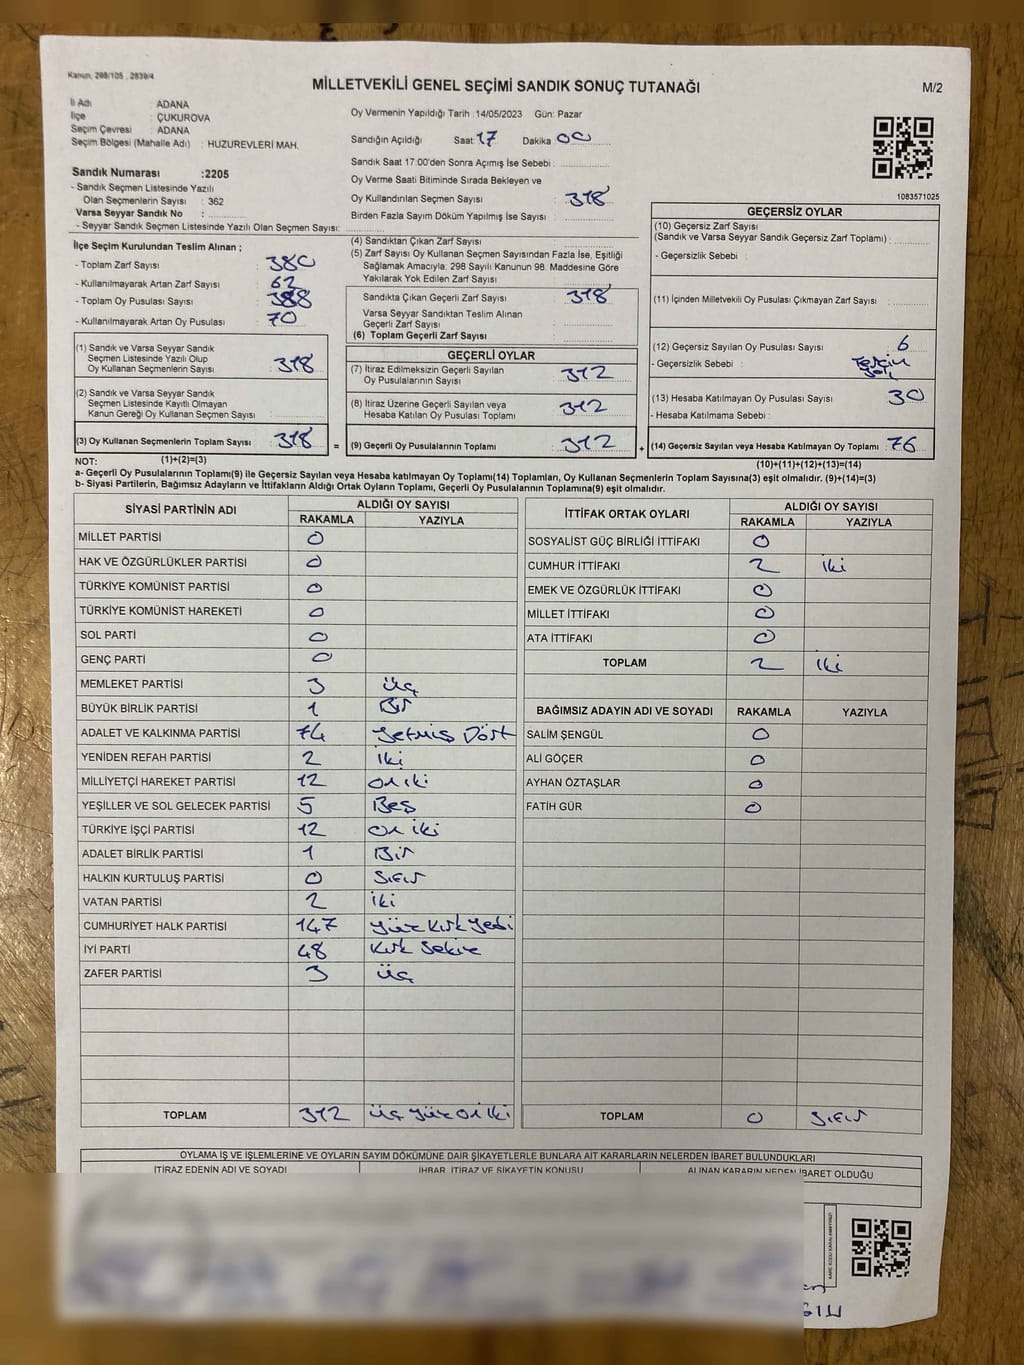 Kanun, 298/105 , 2839/4
MİLLETVEKİLİ GENEL SEÇİMİ SANDIK SONUÇ TUTANAĞI
M/2
İl Adı : ADANA
İlçe : ÇUKUROVA
Seçim Çevresi : ADANA
Seçim Bölgesi (Mahalle Adı) : HUZUREVLERİ MAH.
Sandık Numarası :2205
- Sandık Seçmen Listesinde Yazılı
Olan Seçmenlerin Sayısı : 362
Varsa Seyyar Sandık No :
- Seyyar Sandık Seçmen Listesinde Yazılı Olan Seçmen Sayısı:
Oy Vermenin Yapıldığı Tarih : 14/05/2023 Gün: Pazar
Sandığın Açıldığı Saat: 17 Dakika 00
Sandık Saat 17:00'den Sonra Açımış İse Sebebi :
Oy Verme Saati Bitiminde Sırada Bekleyen ve
Oy Kullandırılan Seçmen Sayısı : 318
Birden Fazla Sayım Döküm Yapılmış İse Sayısı :
1083571025
İlçe Seçim Kurulundan Teslim Alınan ;
- Toplam Zarf Sayısı : 380
- Kullanılmayarak Artan Zarf Sayısı : 62
- Toplam Oy Pusulası Sayısı : 388
- Kullanılmayarak Artan Oy Pusulası : 70
(1) Sandık ve Varsa Seyyar Sandık
Seçmen Listesinde Yazılı Olup
Oy Kullanan Seçmenlerin Sayısı : 318
(2) Sandık ve Varsa Seyyar Sandık
Seçmen Listesinde Kayıtlı Olmayan
Kanun Gereği Oy Kullanan Seçmen Sayısı :
(3) Oy Kullanan Seçmenlerin Toplam Sayısı : 318
(1)+(2)=(3)
(4) Sandıktan Çıkan Zarf Sayısı :
(5) Zarf Sayısı Oy Kullanan Seçmen Sayısından Fazla İse, Eşitliği
Sağlamak Amacıyla; 298 Sayılı Kanunun 98. Maddesine Göre
Yakılarak Yok Edilen Zarf Sayısı :
Sandıkta Çıkan Geçerli Zarf Sayısı : 318
Varsa Seyyar Sandıktan Teslim Alınan
Geçerli Zarf Sayısı :
(6) Toplam Geçerli Zarf Sayısı :
GEÇERLİ OYLAR
(7) İtiraz Edilmeksizin Geçerli Sayılan
Oy Pusulalarının Sayısı : 312
(8) İtiraz Üzerine Geçerli Sayılan veya
Hesaba Katılan Oy Pusulası Toplamı : 312
= (9) Geçerli Oy Pusulalarının Toplamı : 312
GEÇERSİZ OYLAR
(10) Geçersiz Zarf Sayısı
(Sandık ve Varsa Seyyar Sandık Geçersiz Zarf Toplamı) :
- Geçersizlik Sebebi :
(11) İçinden Milletvekili Oy Pusulası Çıkmayan Zarf Sayısı :
(12) Geçersiz Sayılan Oy Pusulası Sayısı : 6
- Geçersizlik Sebebi :
(13) Hesaba Katılmayan Oy Pusulası Sayısı : 30
- Hesaba Katılmama Sebebi :
+ (14) Geçersiz Sayılan veya Hesaba Katılmayan Oy Toplamı : 76
(10)+(11)+(12)+(13)=(14)
NOT:
a- Geçerli Oy Pusulalarının Toplamı(9) ile Geçersiz Sayılan veya Hesaba katılmayan Oy Toplamı(14) Toplamları, Oy Kullanan Seçmenlerin Toplam Sayısına(3) eşit olmalıdır. (9)+(14)=(3)
b- Siyasi Partilerin, Bağımsız Adayların ve İttifakların Aldığı Ortak Oyların Toplamı, Geçerli Oy Pusulalarının Toplamına(9) eşit olmalıdır.
SİYASİ PARTİNİN ADI ALDIĞI OY SAYISI
RAKAMLA YAZIYLA
MİLLET PARTİSİ 0
HAK VE ÖZGÜRLÜKLER PARTİSİ 0
TÜRKİYE KOMÜNİST PARTİSİ 0
TÜRKİYE KOMÜNİST HAREKETİ 0
SOL PARTİ 0
GENÇ PARTİ 0
MEMLEKET PARTİSİ 3 üç
BÜYÜK BİRLİK PARTİSİ 1 Bir
ADALET VE KALKINMA PARTİSİ 74 Yetmiş Dört
YENİDEN REFAH PARTİSİ 2 iki
MİLLİYETÇİ HAREKET PARTİSİ 12 on iki
YEŞİLLER VE SOL GELECEK PARTİSİ 5 Beş
TÜRKİYE İŞÇİ PARTİSİ 12 on iki
ADALET BİRLİK PARTİSİ 1 Bir
HALKIN KURTULUŞ PARTİSİ 0 Sıfır
VATAN PARTİSİ 2 iki
CUMHURİYET HALK PARTİSİ 147 Yüz Kırk Yedi
İYİ PARTİ 48 Kırk Sekiz
ZAFER PARTİSİ 3 üç
TOPLAM 312 üç Yüz On İki
İTTİFAK ORTAK OYLARI ALDIĞI OY SAYISI
RAKAMLA YAZIYLA
SOSYALİST GÜÇ BİRLİĞİ İTTİFAKI 0
CUMHUR İTTİFAKI 2 iki
EMEK VE ÖZGÜRLÜK İTTİFAKI 0
MİLLET İTTİFAKI 0
ATA İTTİFAKI 0
TOPLAM 2 iki
BAĞIMSIZ ADAYIN ADI VE SOYADI RAKAMLA YAZIYLA
SALİM ŞENGÜL 0
ALİ GÖÇER 0
AYHAN ÖZTAŞLAR 0
FATİH GÜR 0
TOPLAM 0 Sıfır
OYLAMA İŞ VE İŞLEMLERİNE VE OYLARIN SAYIM DÖKÜMÜNE DAİR ŞİKAYETLERLE BUNLARA AİT KARARLARIN NELERDEN İBARET BULUNDUKLARI
İTİRAZ EDENİN ADI VE SOYADI İHBAR, İTİRAZ VE ŞİKAYETİN KONUSU ALINAN KARARIN NEDEN İBARET OLDUĞU
KARE KODU KARALAMAYINIZ!